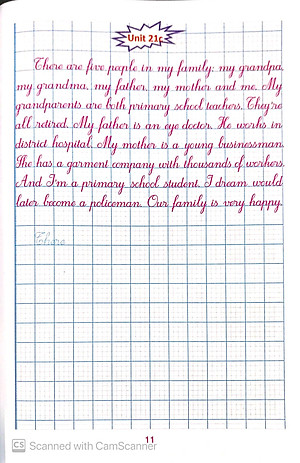 Unit 21c
There are five people in my family: my grandpa,
my grandma, my father, my mother and me. My
grandparents are both primary school teachers. They're
all retired. My father is an eye doctor. He works in
district hospital. My mother is a young businessman.
She has a garment company with thousands of workers.
And I'm a primary school student. I dream would
later become a policeman. Our family is very happy.
There
11
CS Scanned with CamScanner